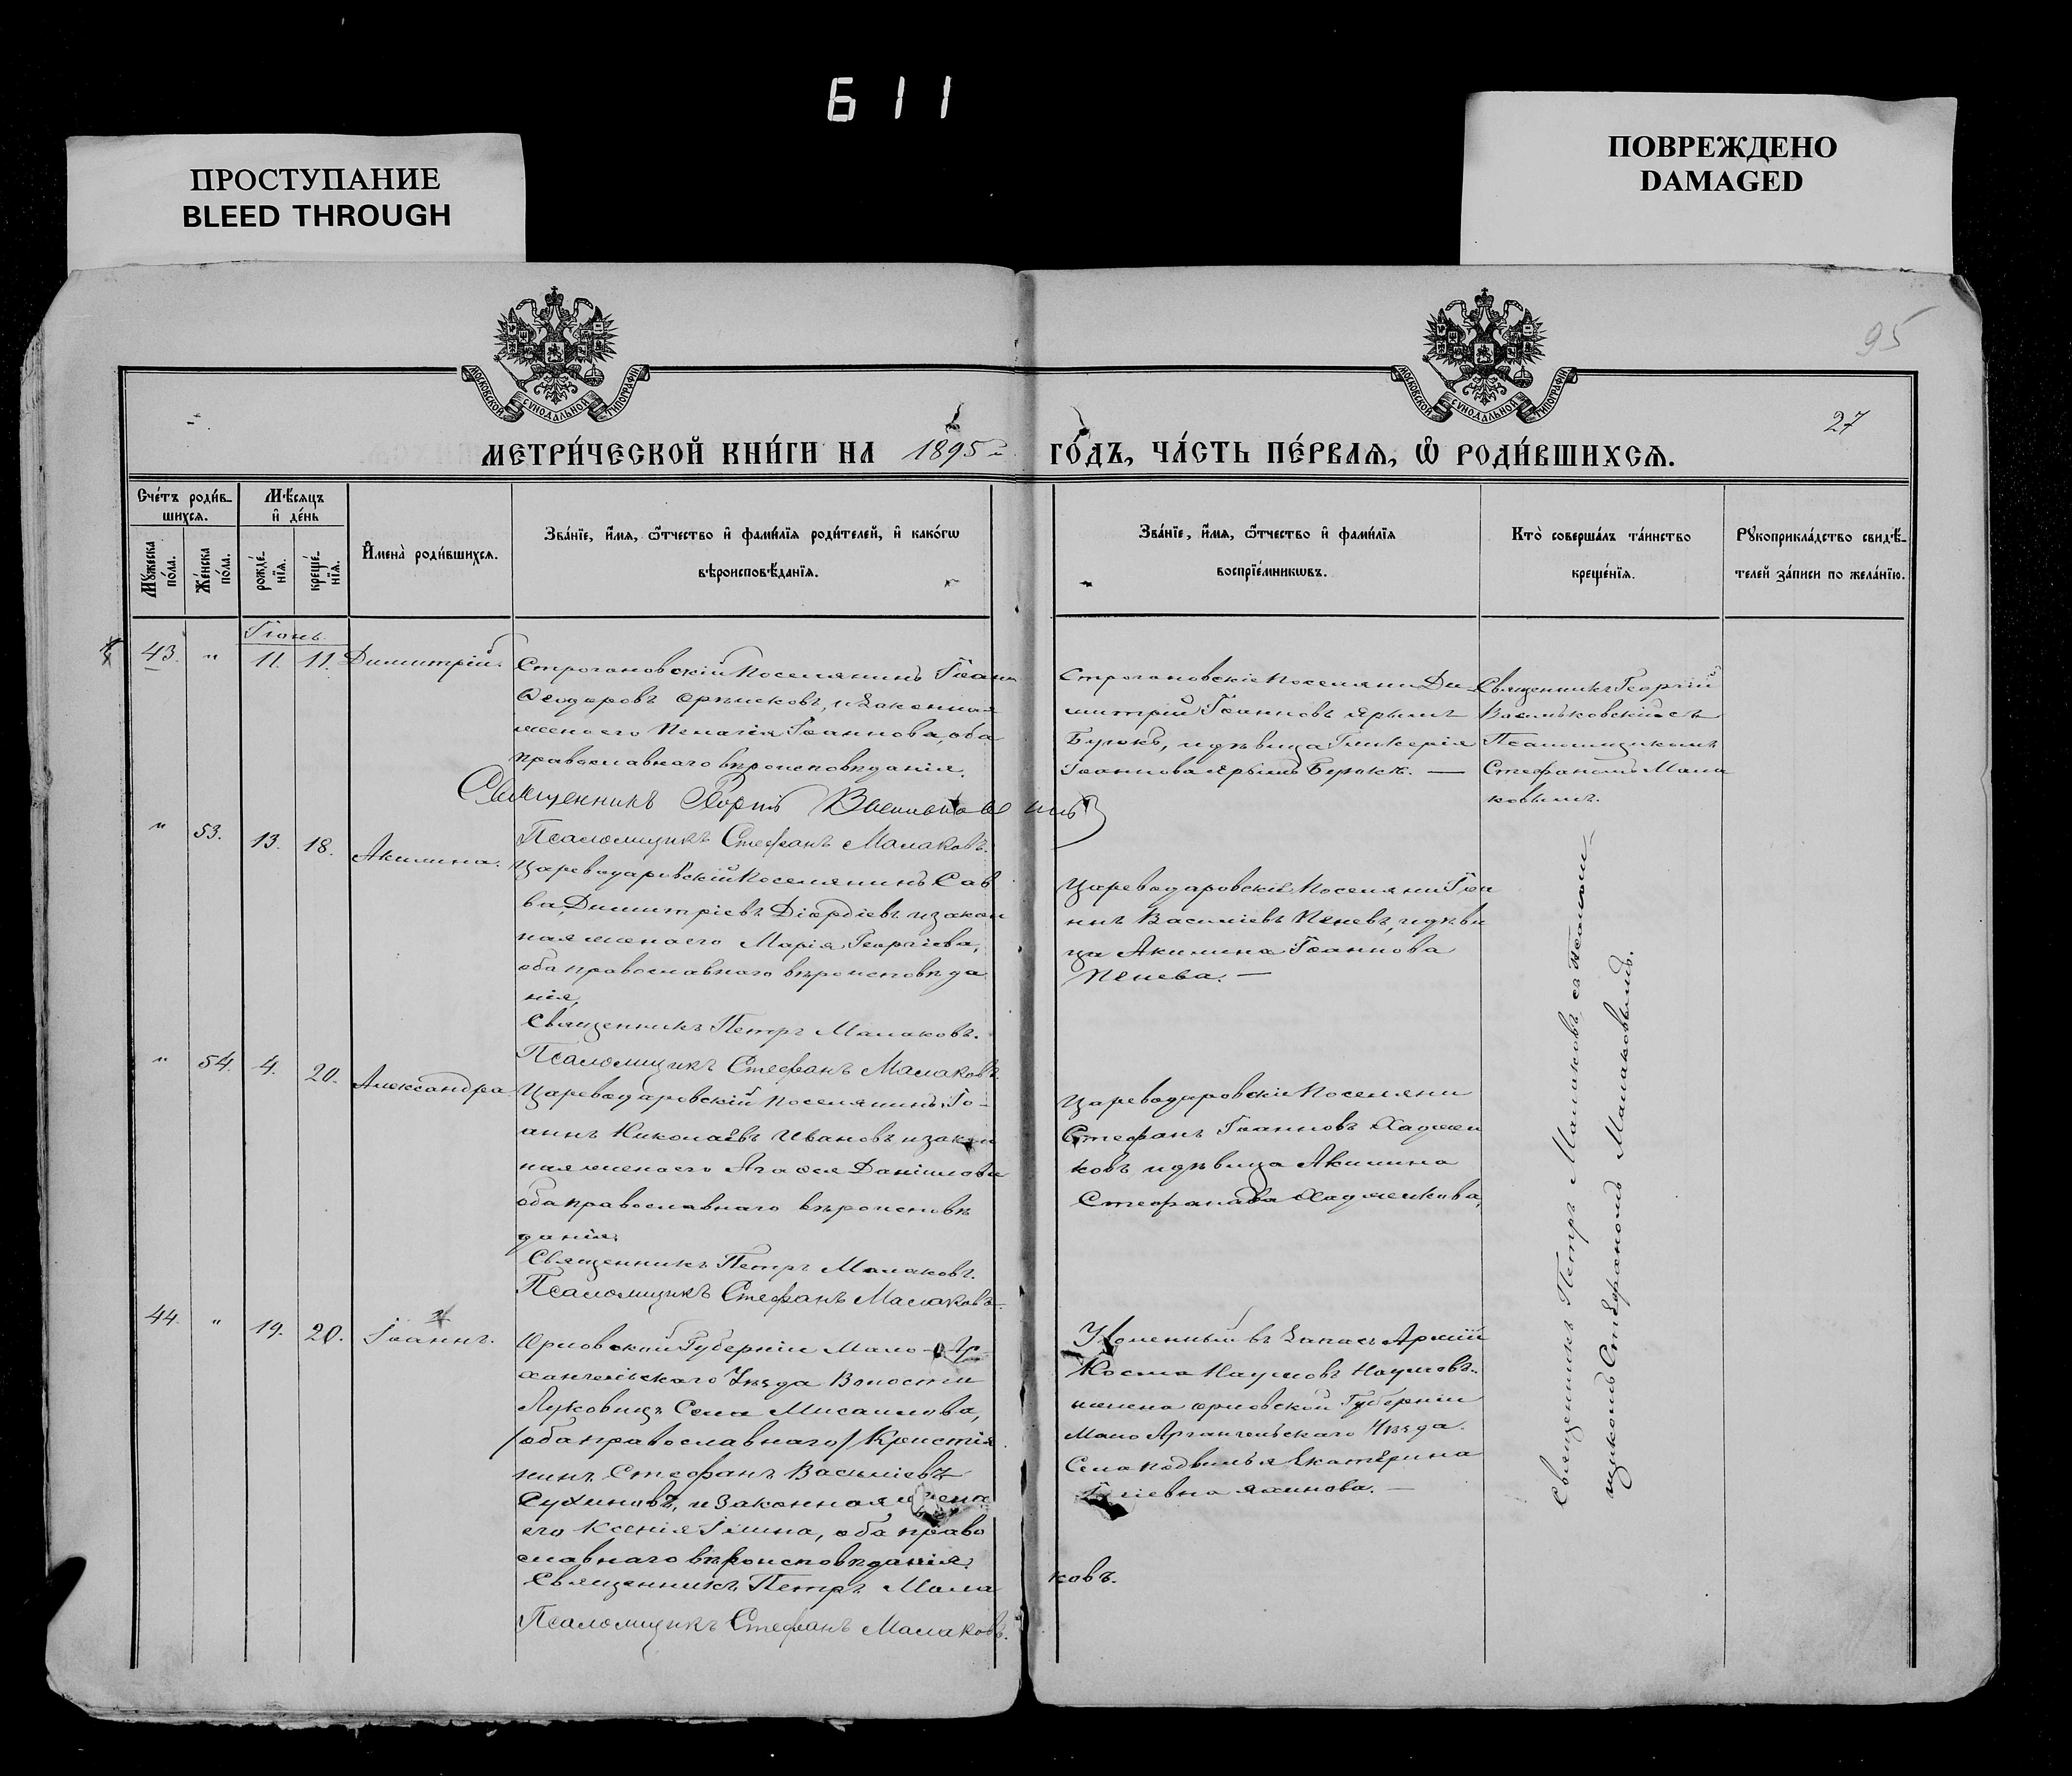 611
ПРОСТУПАНИЕ
BLEED THROUGH
ПОВРЕЖДЕНО
DAMAGED
95
27
МОСКОВСКОЙ СѴНОДАЛЬНОЙ ТИПОГРАФІИ
МОСКОВСКОЙ СѴНОДАЛЬНОЙ ТИПОГРАФІИ
МЕТРИ́ЧЕСКОЙ КНИ́ГИ НА 1895 й ГО́ДЪ, ЧА́СТЬ ПЕ́РВАѦ, Ѡ҆ РОДИ́ВШИХСѦ.
Сче́тъ роди́в-
шихсѧ.
Мѣ́сѧцъ
и҆ де́нь
Мꙋ́жеска
по́ла.
Же́нска
по́ла.
рожде́-
нїѧ.
креще́-
нїѧ.
И҆мена̀ роди́вшихсѧ.
Зва́нїе, и҆́мѧ, ѻ҆́тчество и҆ фами́лїѧ роди́телей, и҆ како́гѡ
вѣроисповѣ́данїѧ.
Зва́нїе, и҆́мѧ, ѻ҆́тчество и҆ фами́лїѧ
воспрїе́мникѡвъ.
Кто̀ соверша́лъ та́инство
креще́нїѧ.
Рꙋкоприкла́дство свидѣ́-
телей за́писи по жела́нїю.
Іюнь
43. " 11. 11. Димитрій.
Строгановскій Поселянинъ Іоаннъ
Ѳеодоровъ и законная
жена его Пелагія Іоаннова, оба
православнаго вѣроисповѣданія.
Священникъ Георгій Васильковскій
Псаломщикъ Стефанъ Малаковъ.
Строгановскіе Поселяни Ди-
митрій Іоанновъ Ярымъ
Бурюкъ, и дѣвица Гликерія
Іоаннова Ярымъ Бурюкъ. —
Священникъ Георгій
Васильковскій съ
Псаломщикомъ
Стефаномъ Мала
ковымъ.
" 53. 13. 18. Акилина.
Цареводаровскій Поселянинъ Сав
ва Димитріевъ Діордіевъ и закон
ная жена его Марія Георгіева,
оба православнаго вѣроисповѣда
нія.
Священникъ Петръ Малаковъ.
Псаломщикъ Стефанъ Малаковъ.
Цареводаровскіе Поселяни Іоа
ннъ Василіевъ Пеневъ, и дѣви
ца Акилина Іоаннова
Пенева. —
" 54. 4. 20. Александра
Цареводаровскій Поселянинъ Іо-
аннъ Николаевъ Ивановъ и закон
ная жена его Агафія Даніилова
оба православнаго вѣроисповѣ
данія.
Священникъ Петръ Малаковъ.
Псаломщикъ Стефанъ Малаковъ.
Цареводаровскіе Поселяни
Стефанъ Іоанновъ Хаджи
ковъ и дѣвица Акилина
Стефанова Хаджикова,
44. " 19. 20. Іоаннъ.
Орловской Губерніи Мало-Ар-
хангельскаго Уѣзда Волости
Луковицъ Села Мисаилова,
/оба православнаго/ Кристія
нинъ Стефанъ Василіевъ
Сухиновъ, и законная жена
его Ксенія Іліина, оба право
славнаго вѣроисповѣданія.
Священникъ Петръ Малаковъ.
Псаломщикъ Стефанъ Малаковъ.
Уволенный въ Запасъ Арміи
Косма Наумовъ Наумовъ.
жена Орловской Губерніи
Мало Архангельскаго Уѣзда.
Села Екатерина
Яхинова. —
Священникъ Петръ Малаковъ съ Псалом-
щикомъ Стефаномъ Малаковымъ.